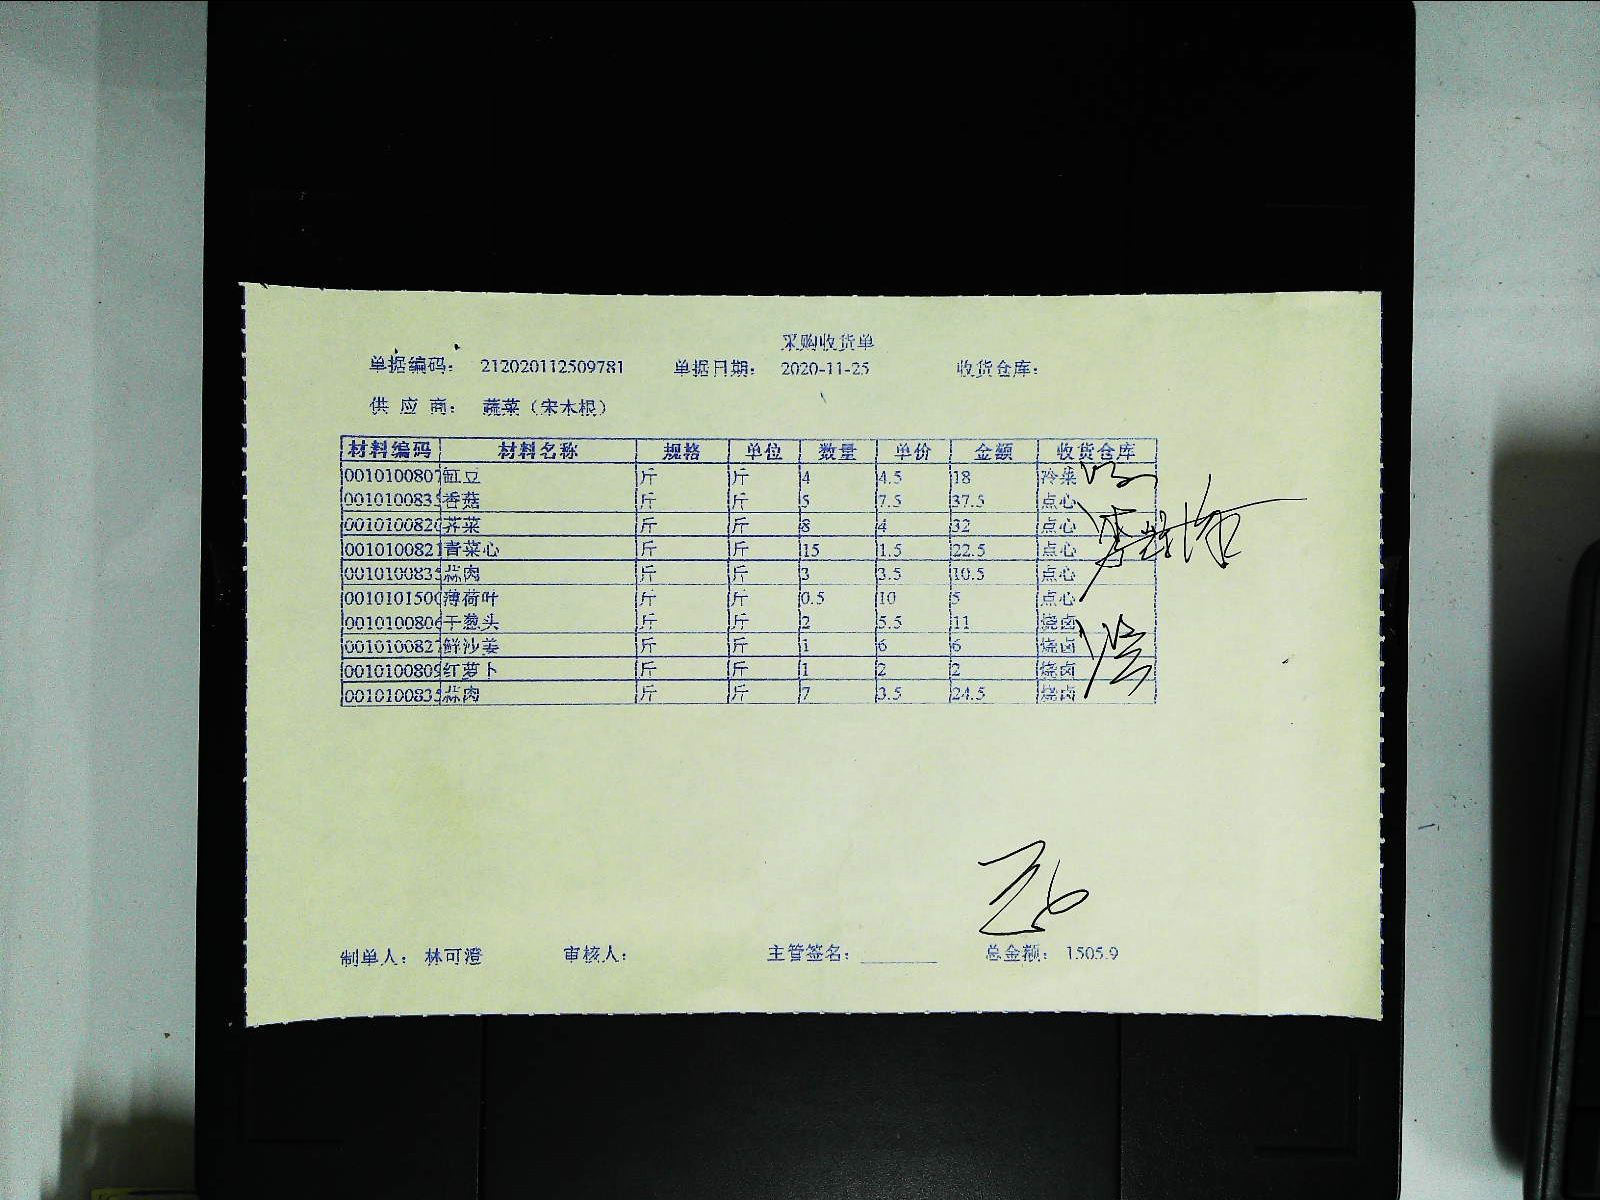 采购收货单
单据编码： 212020112509781 单据日期： 2020-11-25 收货仓库：
供 应 商： 蔬菜（宋木根）
材料编码 材料名称 规格 单位 数量 单价 金额 收货仓库
0010100807 缸豆 斤 斤 4 4.5 18 冷菜
001010083 香菇 斤 斤 5 7.5 37.5 点心
001010082 荠菜 斤 斤 8 4 32 点心
0010100821 青菜心 斤 斤 15 1.5 22.5 点心
001010083 蒜肉 斤 斤 3 3.5 10.5 点心
001010150 薄荷叶 斤 斤 0.5 10 5 点心
001010080 干葱头 斤 斤 2 5.5 11 烧卤
001010082 鲜沙姜 斤 斤 1 6 6 烧卤
001010080 红萝卜 斤 斤 1 2 2 烧卤
001010083 蒜肉 斤 斤 7 3.5 24.5 烧卤
制单人： 林可澄 审核人： 主管签名： 总金额： 1505.9